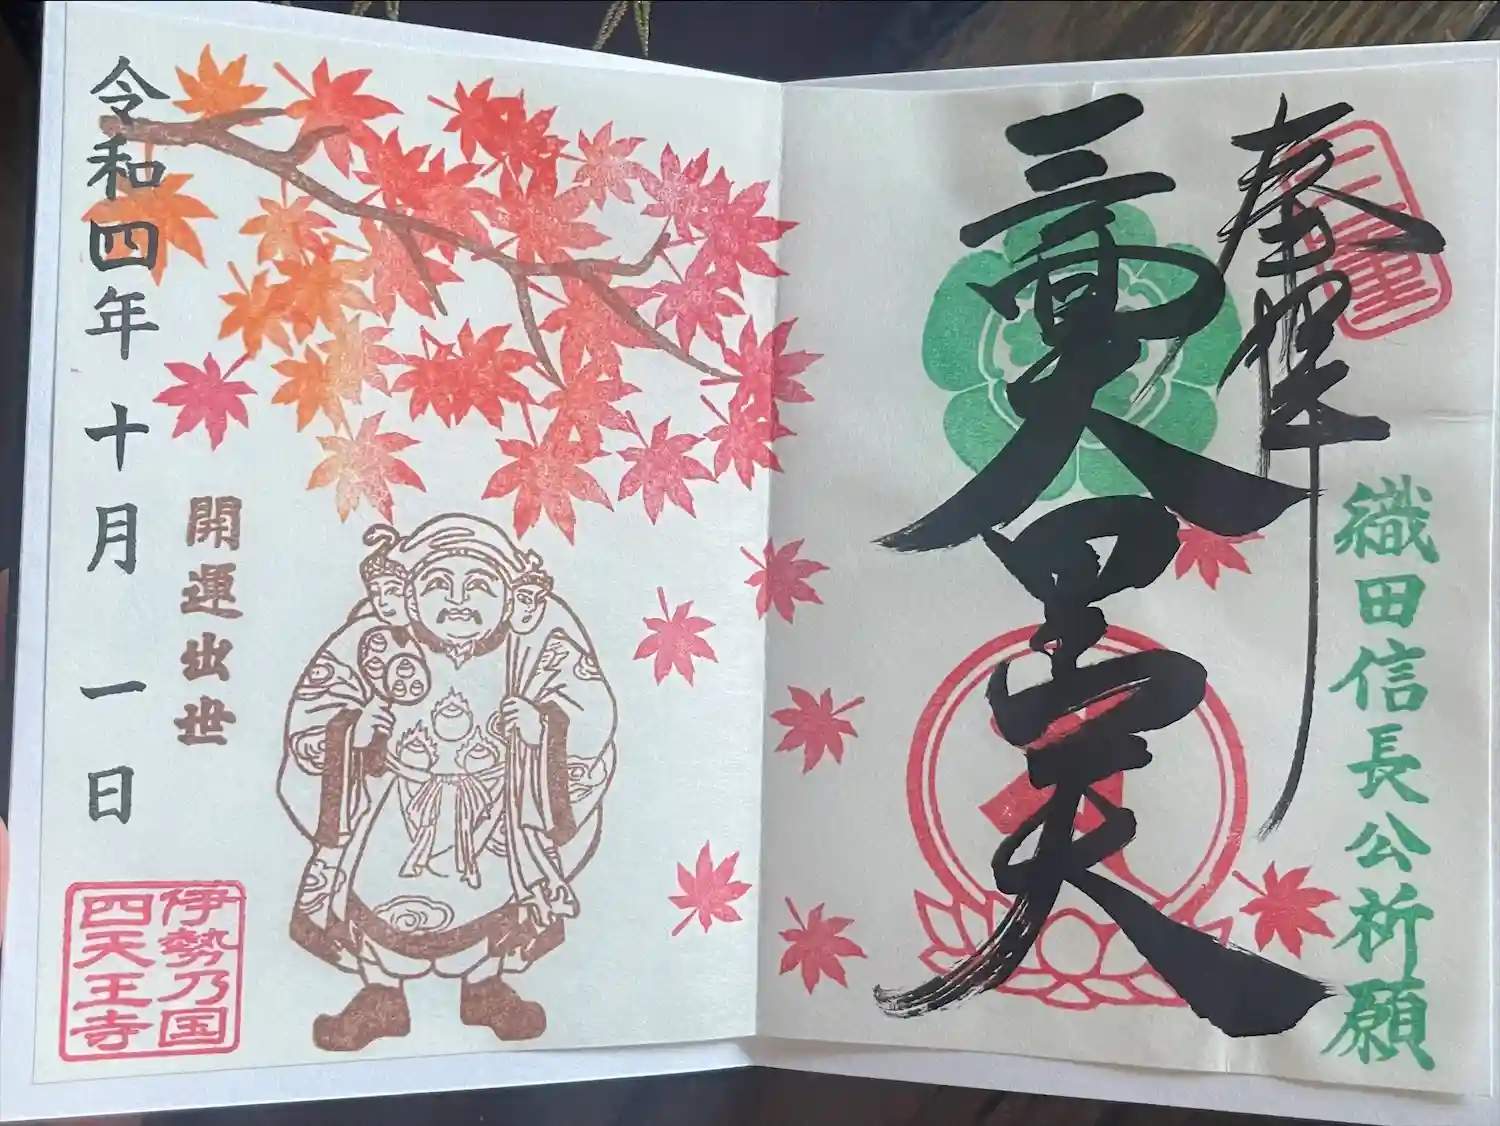 三重
織田信長公祈願
奉拝
三面大黒天
開運出世
令和四年十月一日
伊勢乃国
四天王寺